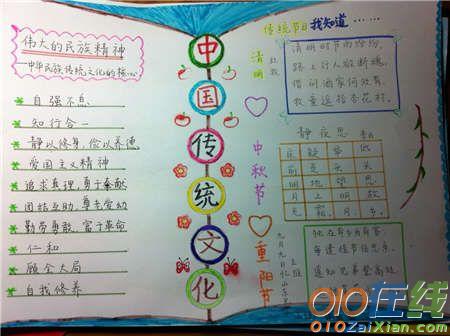 伟大的民族精神
—中华民族传统文化的核心
自强不息
知行合一
静以修身,俭以养德
爱国主义精神
追求真理,勇于奉献
团结互助,尊老爱幼
勤劳勇敢,富于革命
仁和
顾全大局
自我修养
中
国
传
统
文
化
传统节日我知道……
清明
杜牧
清明时节雨纷纷,
路上行人欲断魂。
借问酒家何处有,
牧童遥指杏花村。
中秋节
静夜思
床疑举低
前是头头
明地望思
月上明故
光霜月乡
重阳节
九月九日忆山东
独在异乡为异客,
每逢佳节倍思亲。
遥知兄弟登高处,
010在线
010ZaiXian.com